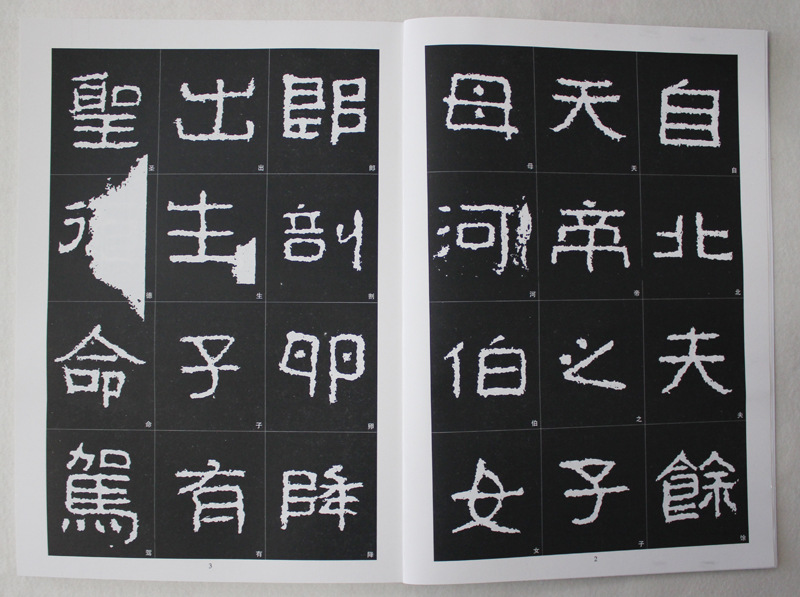 自北夫餘
自
北
夫
馀
天帝之子
天
帝
之
子
母河伯女
母
河
伯
女
2
郎剖卵降
郎
剖
卵
降
出生子有
出
生
子
有
聖命駕
圣
德
命
驾
3